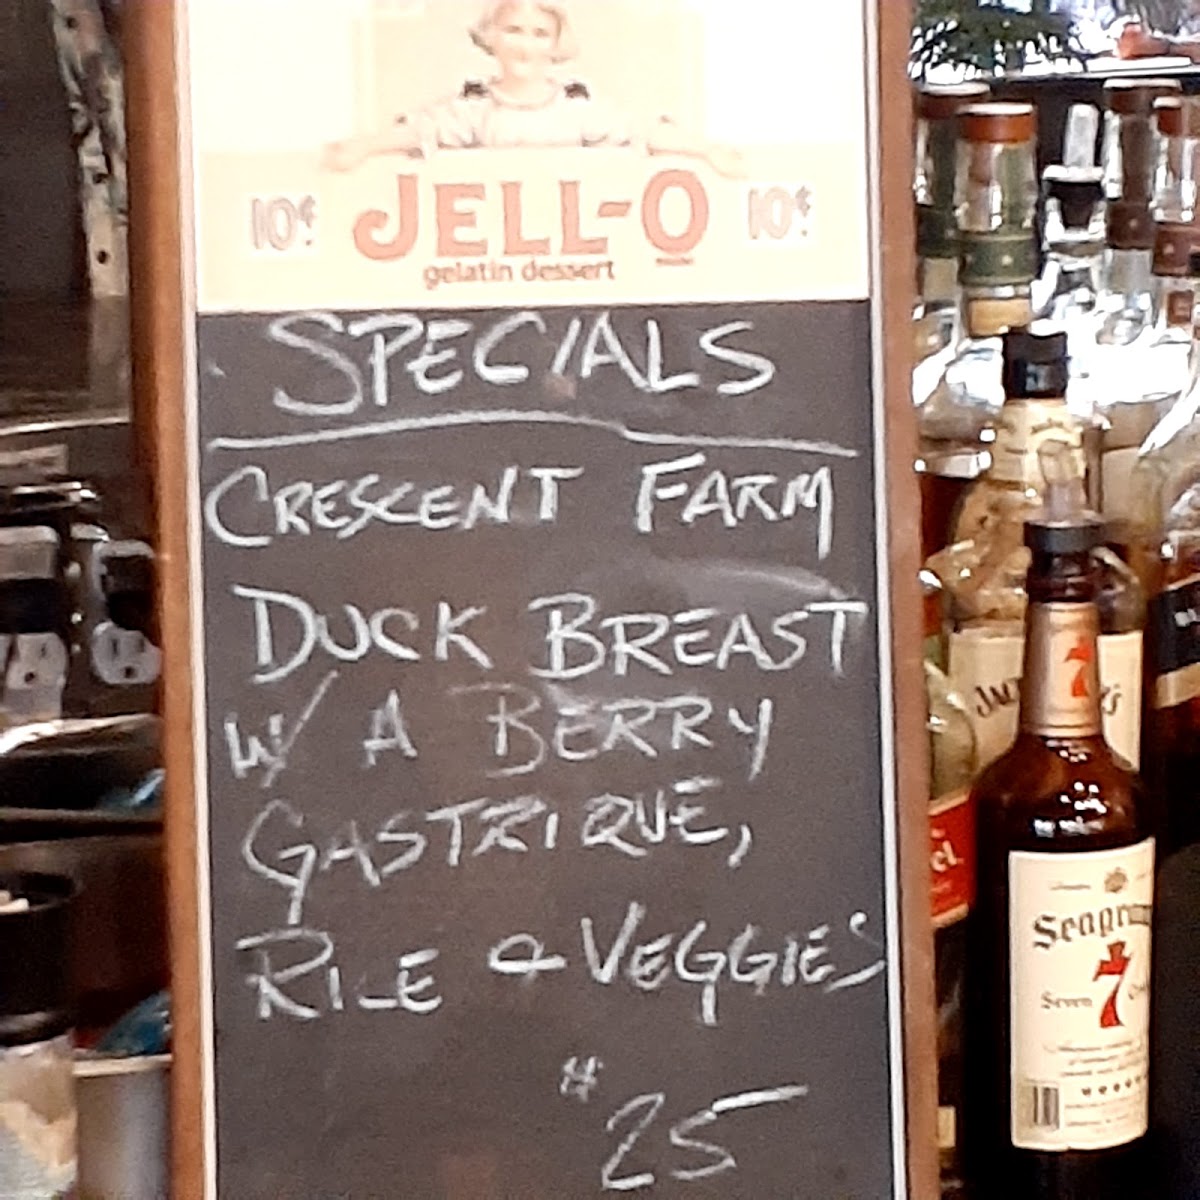 10¢ JELL-O 10¢
gelatin dessert
SPECIALS
CRESCENT FARM
DUCK BREAST
W/ A BERRY
GASTRIQUE,
RICE & VEGGIES
# 25
7
Seagram
7
Seven